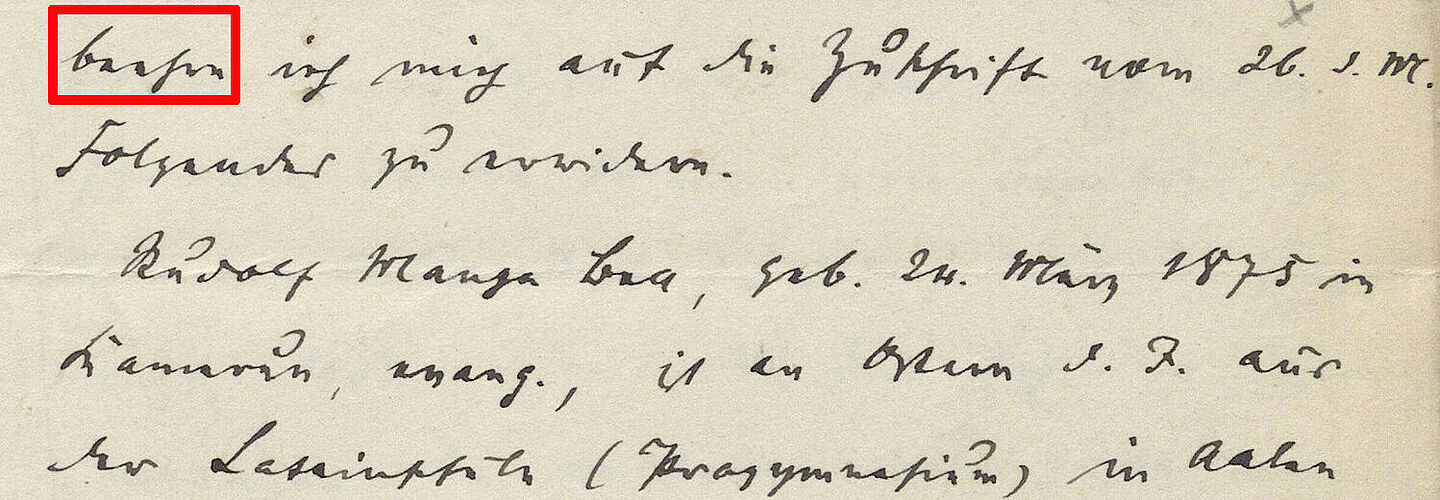 beehre ich mich auf die Zuschrift vom 26. d. M.
Folgendes zu erwidern.
Rudolf Manga Bell, geb. 24. März 1875 in
Kamerun, evang., ist an Ostern d. J. aus
der Lateinschule (Progymnasium) in Aalen